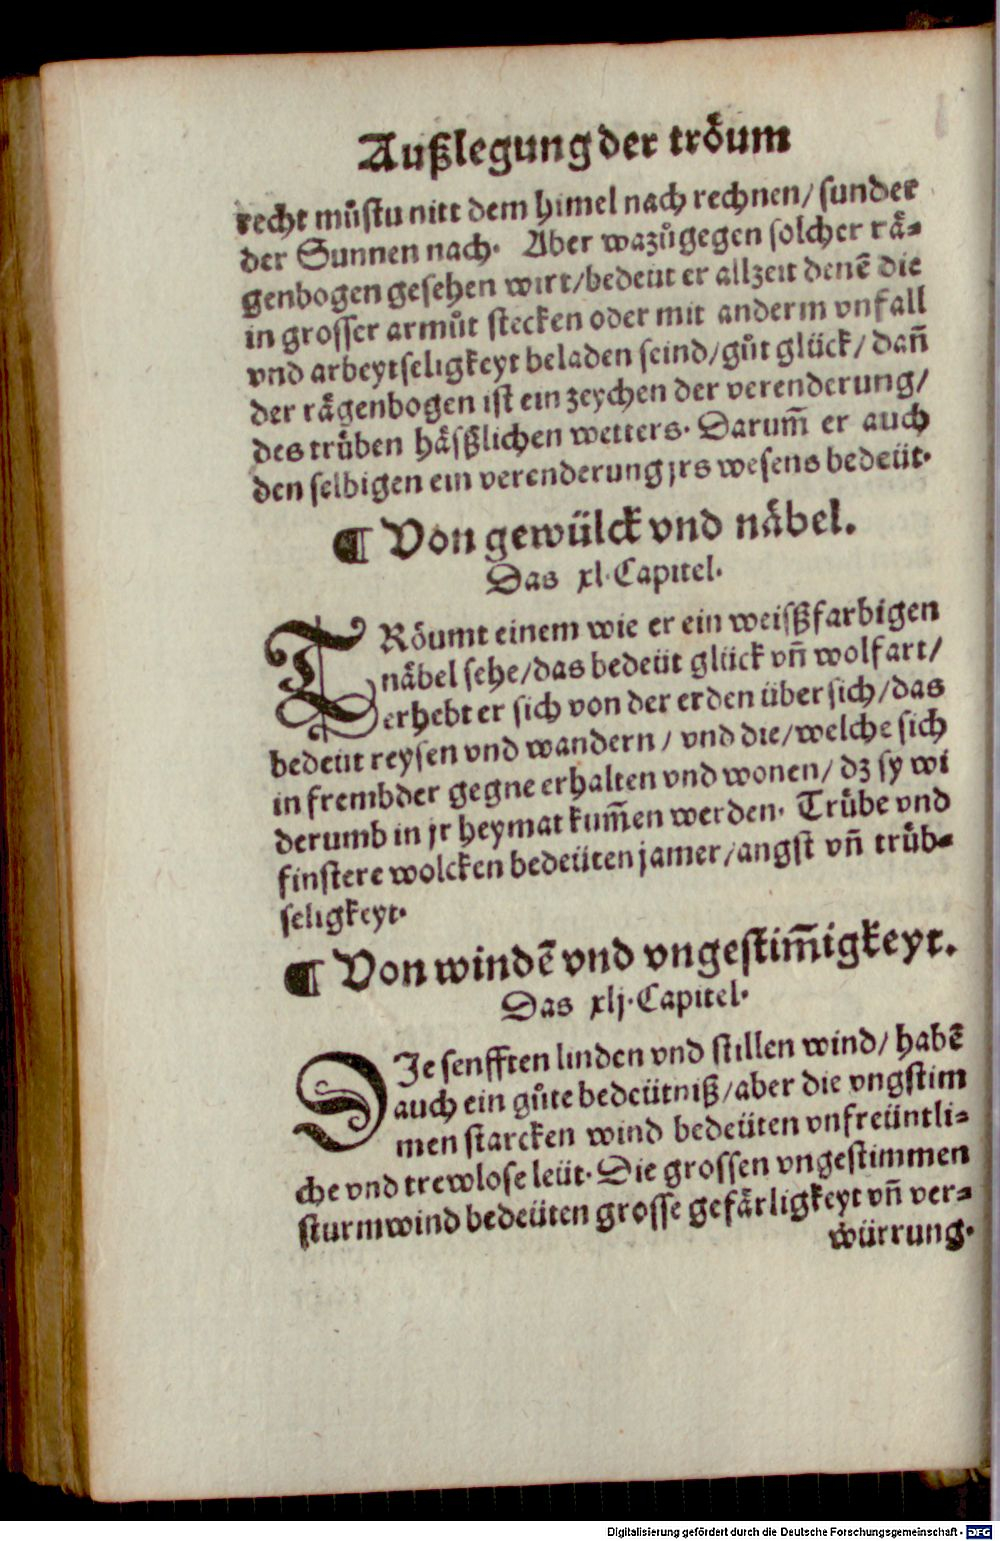 Außlegung der tröum
recht můstu nitt dem himel nach rechnen/ sunder
der Sunnen nach. Aber wazůgegen solcher rä-
genbogen gesehen wirt/bedeüt er allzeit denē die
in grosser armůt stecken oder mit anderm vnfall
vnd arbeytseligkeyt beladen seind/gůt glück/ dañ
der rägenbogen ist ein zeychen der verenderung/
des trüben häßlichen wetters. Darum̄ er auch
den selbigen ein verenderung jrs wesens bedeüt.
¶ Von gewülck vnd näbel.
Das xl. Capitel.
TRöumt einem wie er ein weißfarbigen
näbel sehe/das bedeüt glück vñ wolfart/
erhebt er sich von der erden über sich/das
bedeüt reysen vnd wandern/ vnd die/welche sich
in frembder gegne erhalten vnd wonen/ dz sy wi
derumb in jr heymat kum̄en werden. Trübe vnd
finstere wolcken bedeüten jamer/angst vñ trüb-
seligkeyt.
¶ Von windē vnd vngestim̄igkeyt.
Das xlj. Capitel.
DIe senfften linden vnd stillen wind/ habē
auch ein gůte bedeütniß/aber die vngstim
men starcken wind bedeüten vnfreüntli-
che vnd trewlose leüt. Die grossen vngestimmen
sturmwind bedeüten grosse gefärligkeyt vñ ver-
würrung.
Digitalisierung gefördert durch die Deutsche Forschungsgemeinschaft - DFG